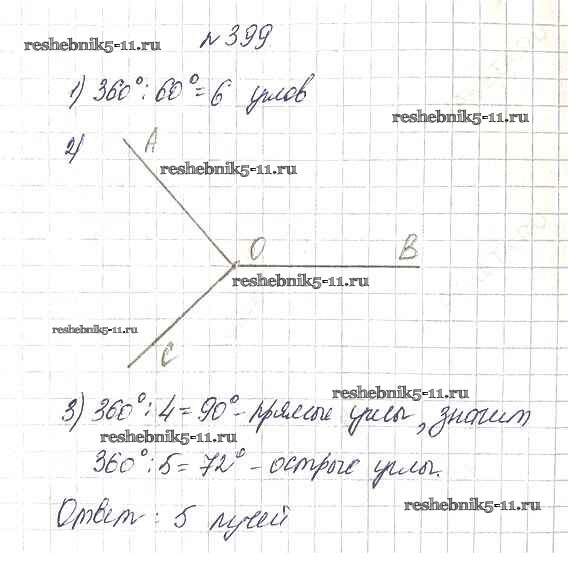 №399
reshebnik5-11.ru
1) 360° : 60° = 6 углов
reshebnik5-11.ru
2) A
reshebnik5-11.ru
O B
reshebnik5-11.ru
reshebnik5-11.ru
C
reshebnik5-11.ru
3) 360° : 4 = 90° - прямые углы, значит
reshebnik5-11.ru
360° : 5 = 72° - острые углы.
reshebnik5-11.ru
Ответ : 5 лучей